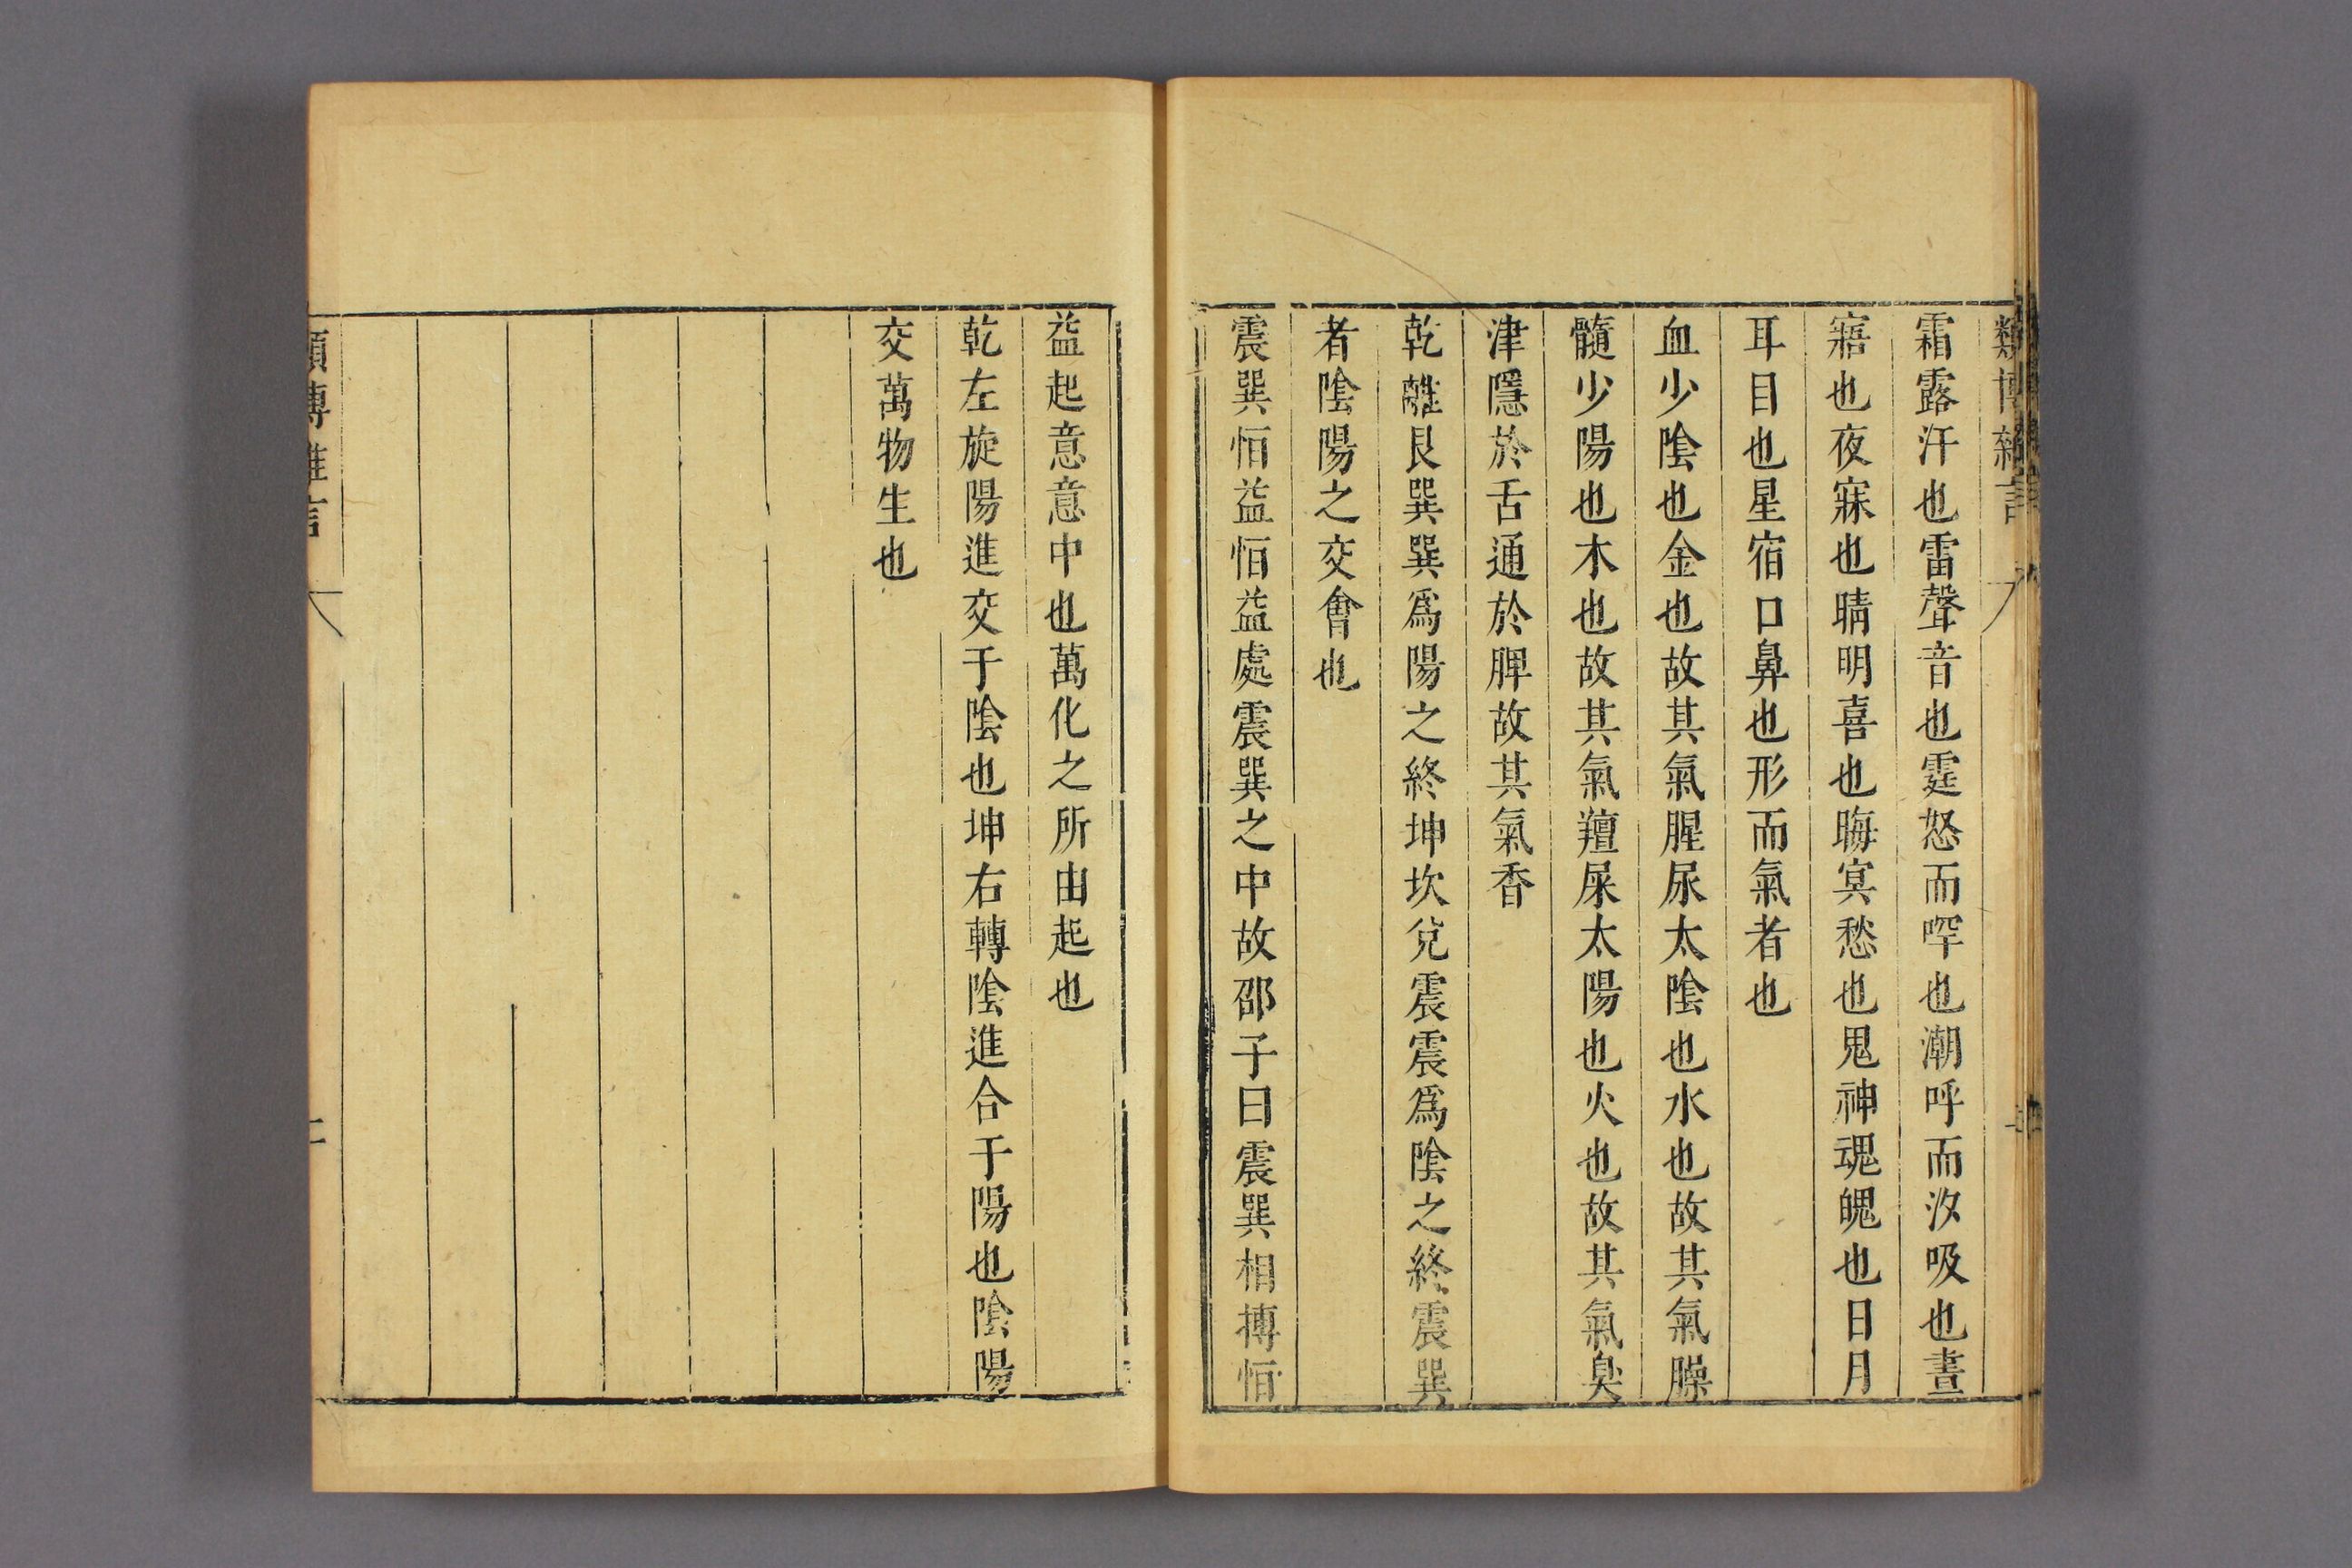 類博雜言
霜露汗也雷聲音也霆怒而啈也潮呼而汐吸也晝
寤也夜寐也晴明喜也晦冥愁也鬼神魂魄也日月
耳目也星宿口鼻也形而氣者也
血少陰也金也故其氣腥尿太陰也水也故其氣臊
髓少陽也木也故其氣羶屎太陽也火也故其氣臭
津隱於舌通於脾故其氣香
乾離艮巽巽爲陽之終坤坎兌震震爲陰之終震巽
者陰陽之交會也
震巽恒益恒益處震巽之中故邵子曰震巽相摶恒
益起意意中也萬化之所由起也
乾左旋陽進交于陰也坤右轉陰進合于陽也陰陽
交萬物生也
類博雜言